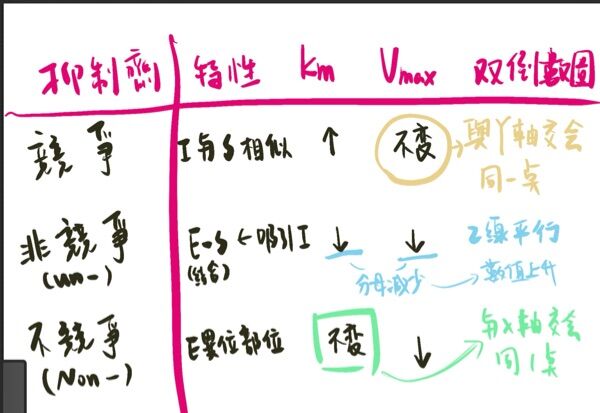 抑制劑 特性 Km Vmax 双倒數圖
競爭 I与S相似 ↑ 不变 → 與Y軸交会
同一点
非競爭 E-S ← 吸引I ↓ ↓ 2線平行
(un-) (結合) 分母減少 → 數值上升
不競爭 E異位部位 不変 ↓ 与x軸交会
(Non-) 同1点